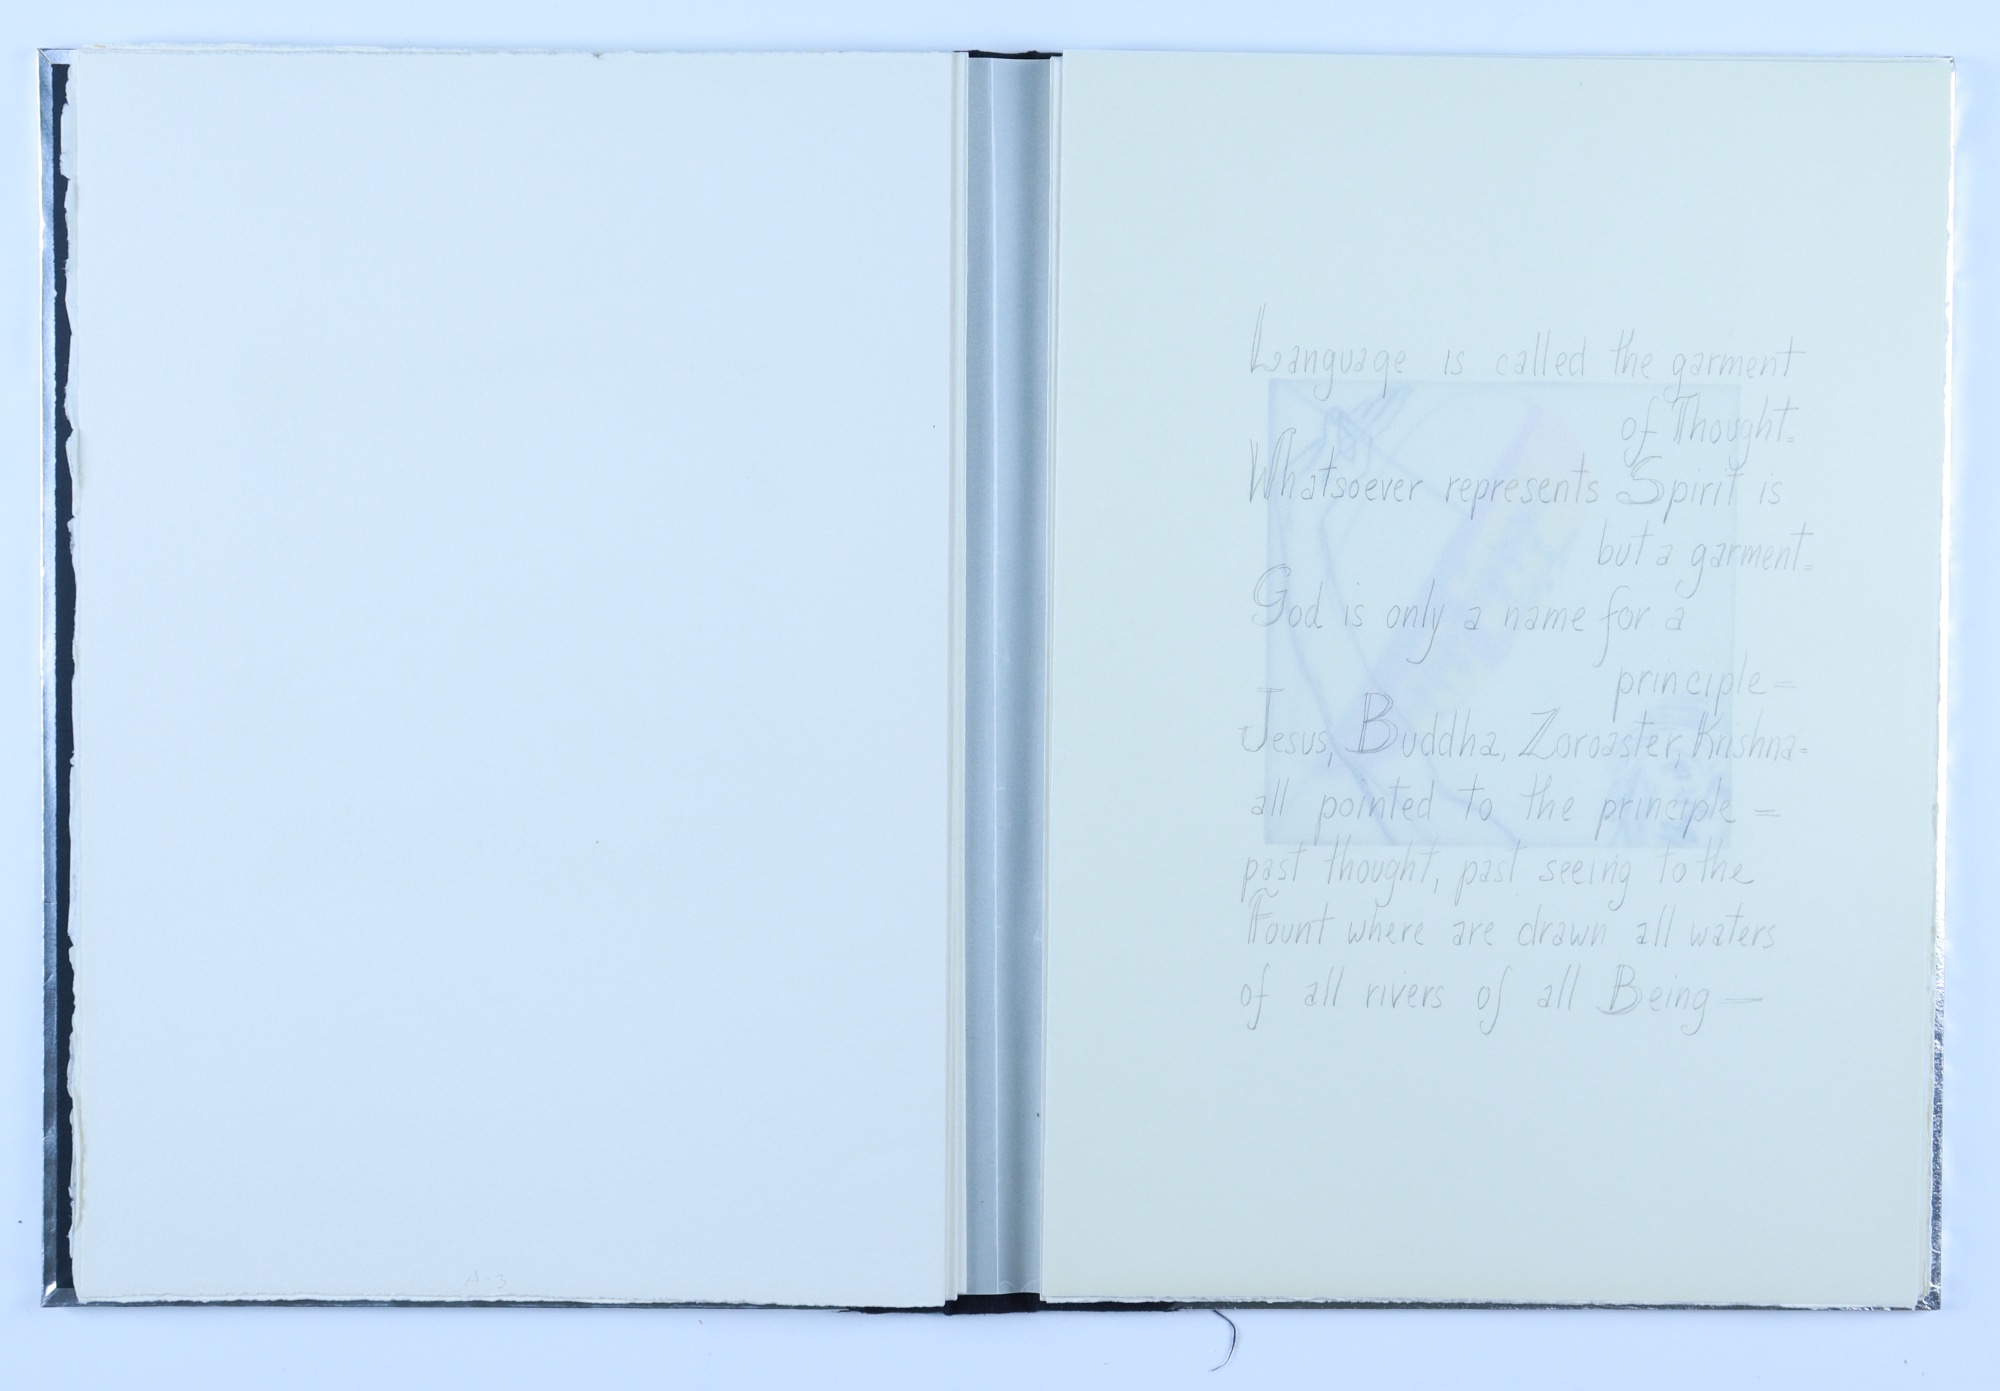 Language is called the garment
of Thought=
Whatsoever represents Spirit is
but a garment=
God is only a name for a
principle=
Jesus, Buddha, Zoroaster, Krishna=
all pointed to the principle=
past thought, past seeing to the
Fount where are drawn all waters
of all rivers of all Being—
A-3